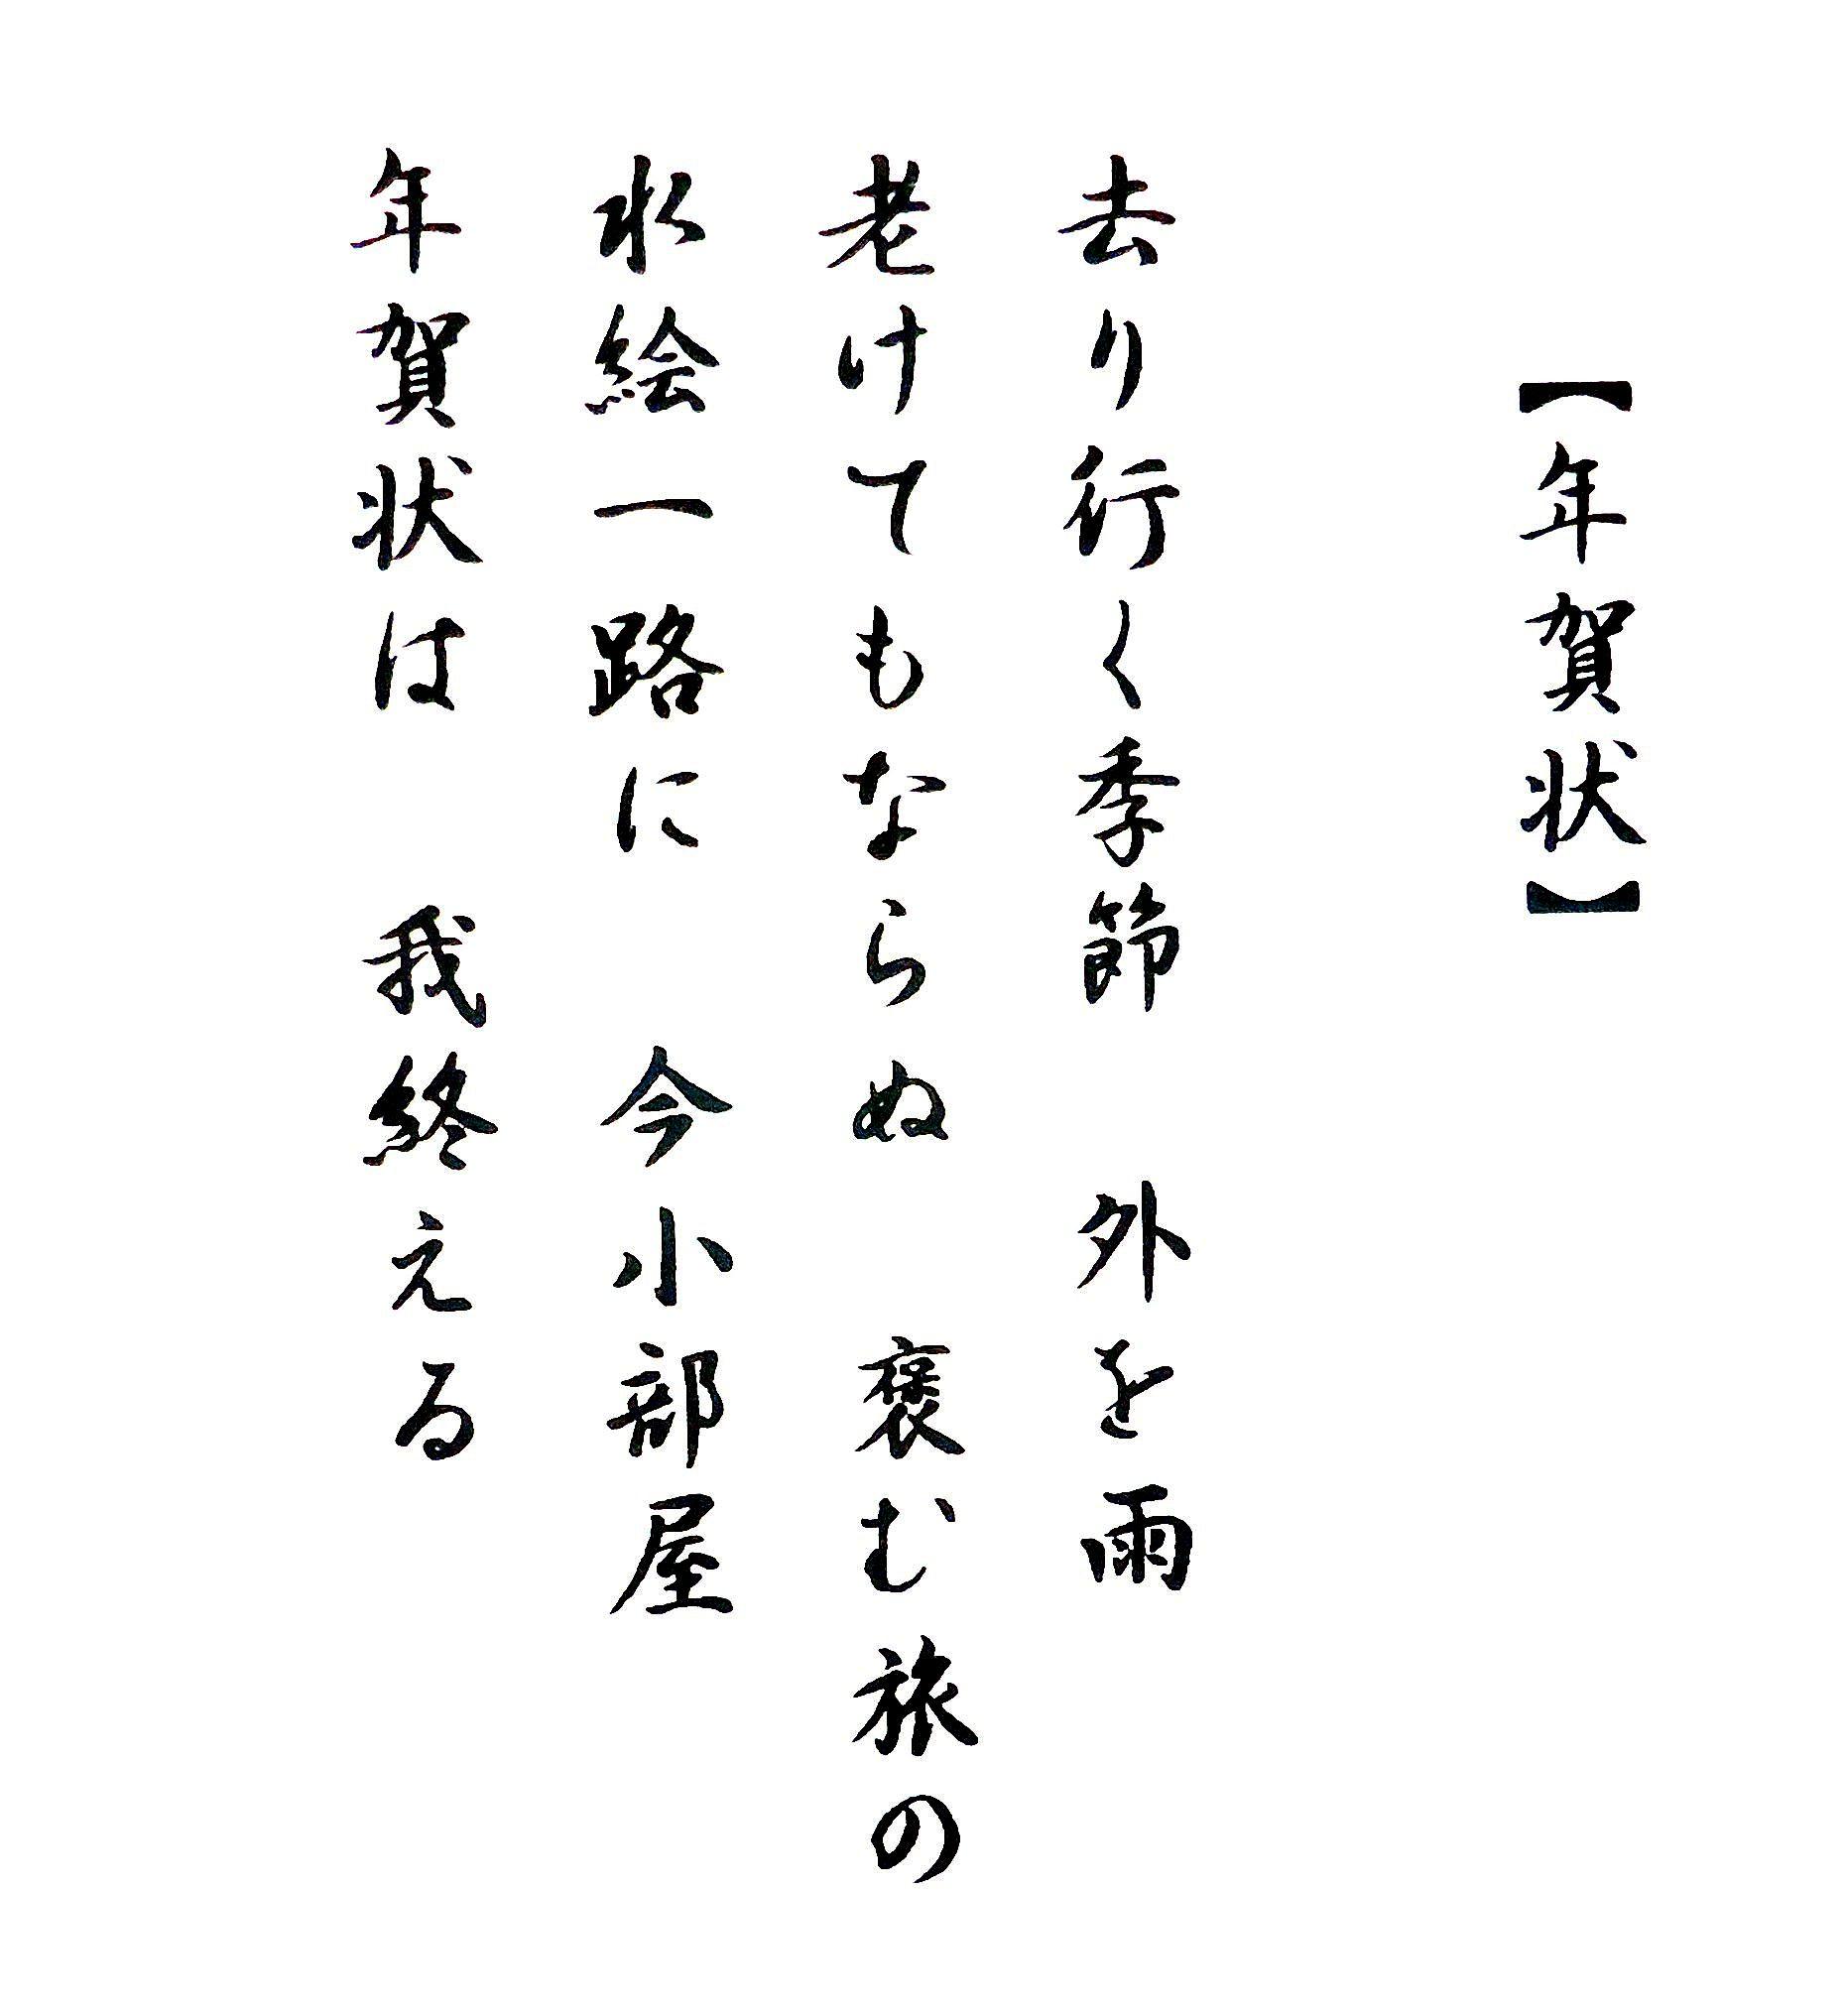 【年賀状】
去り行く季節　外を雨
老けてもならぬ　褒む旅の
水絵一路に　今小部屋
年賀状は　我終える